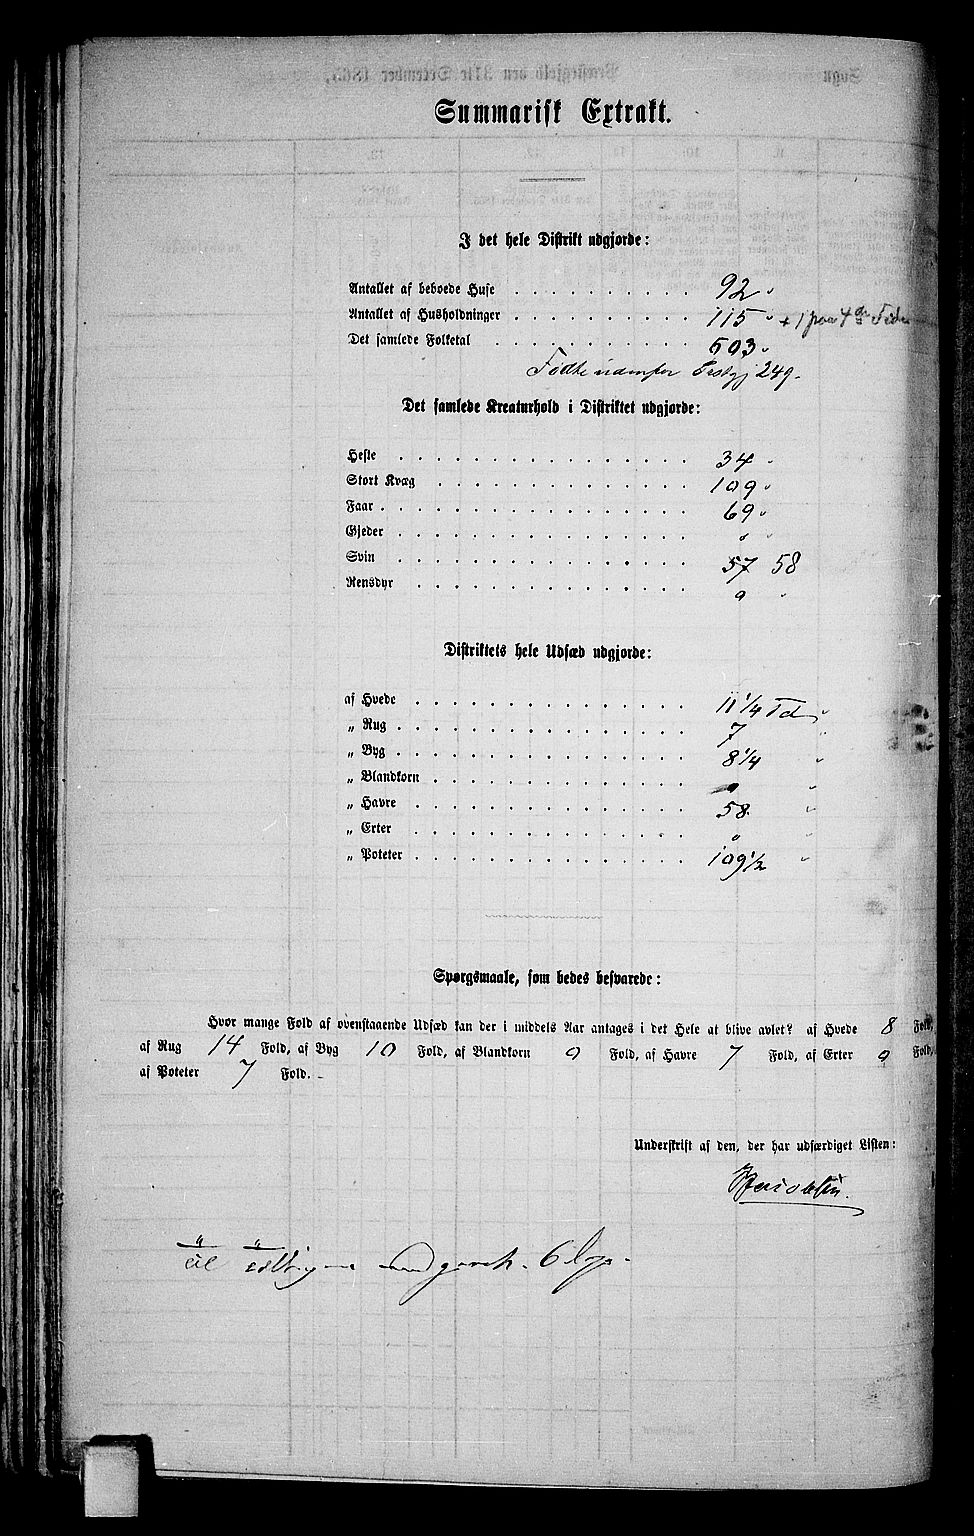 Summarisk Extrakt.
I det hele Distrikt udgjorde:
Antallet af beboede Huse . . . . . . . . . . 92 "
Antallet af Husholdninger . . . . . . . . . . 115 " + 1 paa 4de
Det samlede Folketal . . . . . . . . . . 503 "
Fødte udenfor 249.
Det samlede Kreaturhold i Distriktet udgjorde:
Heste . . . . . . . . . . 34 "
Stort Kvæg . . . . . . . . . . 109 "
Faar . . . . . . . . . . 69 "
Gjeder . . . . . . . . . . " "
Svin . . . . . . . . . . 57 58
Rensdyr . . . . . . . . . . 0 "
Distriktets hele Udsæd udgjorde:
af Hvede . . . . . . . . . . 11 1/4 Td "
„ Rug . . . . . . . . . . 7 "
„ Byg . . . . . . . . . . 8 1/4 "
„ Blandkorn . . . . . . . . . . 0 "
„ Havre . . . . . . . . . . 58. "
„ Erter . . . . . . . . . . 0 "
„ Poteter . . . . . . . . . . 109 1/2 "
Spørgsmaale, som bedes besvarede:
Hvor mange Fold af ovenstaaende Udsæd kan der i middels Aar antages i det Hele at blive avlet? af Hvede 8 Fold,
af Rug 14 Fold, af Byg 10 Fold, af Blandkorn 0 Fold, af Havre 7 Fold, af Erter 0 Fold,
af Poteter 7 Fold.
Underskrift af den, der har udfærdiget Listen:
Jacobsen.
6